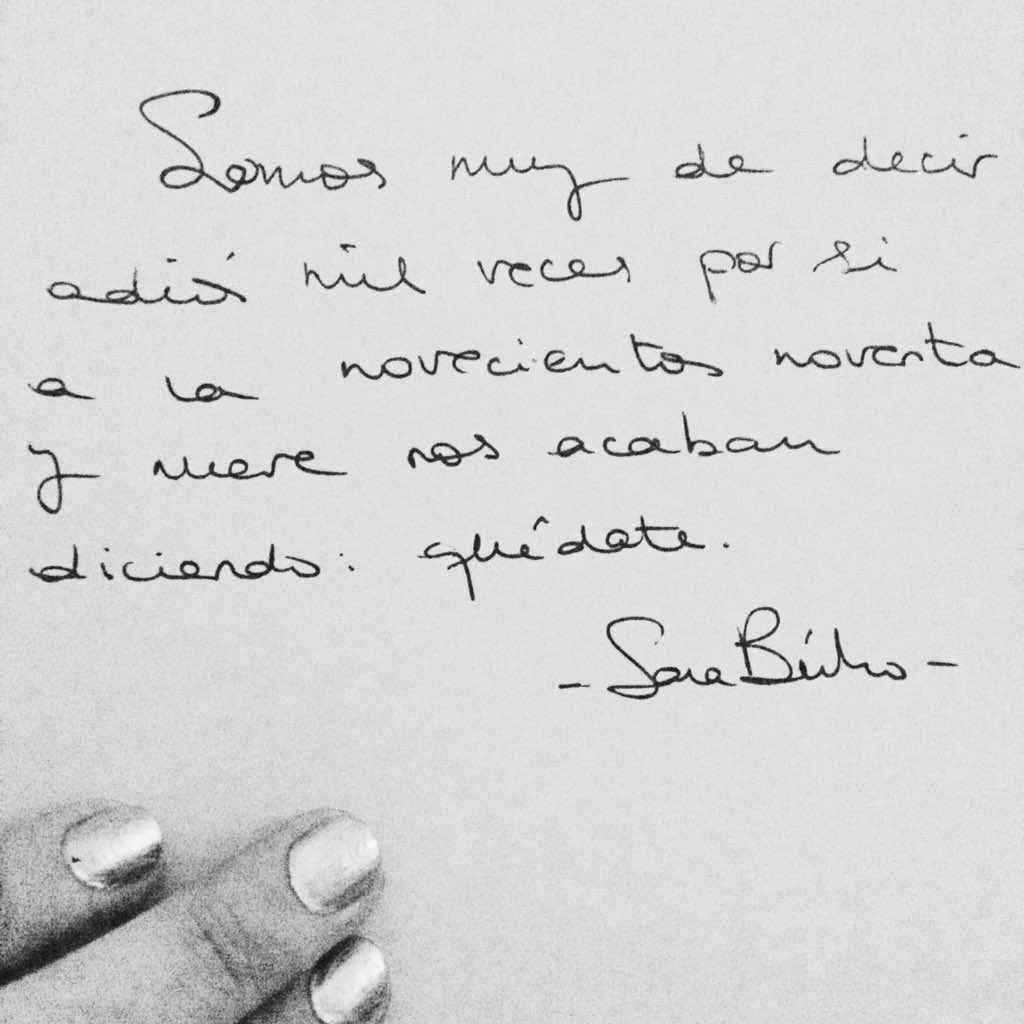 Somos muy de decir
adiós mil veces por si
a la novecientos noventa
y nueve nos acaban
diciendo: quédate.
- Sara Búho -